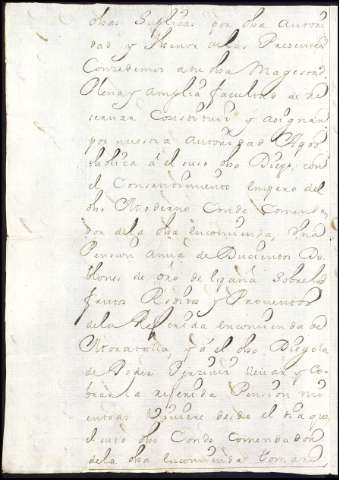 dhas Suplicas por dha Autori
dad y thenor de las Presentes
Concedemos a su dha Magestad
Plena y Amplia facultad de re
Constituir y Asignar
por nuestra Autoridad Apos
tholica á el suso dho Diego, con
el Consentimiento Empero del
dho Moderno Conde Comenda
dor de la dha Encomienda, Una
Pension Anua de Ducientos Do
blones de oro de sobre los
frutos Reditos y Proventos
de la Referida Encomienda de
Moratalla, y á el dho Diego la
de Poder Percivir llevar y Co
brar la referida Pension mi
entras Viviere desde el dia q̃
el suso dho Conde Comendador
de la dha Encomienda tomare